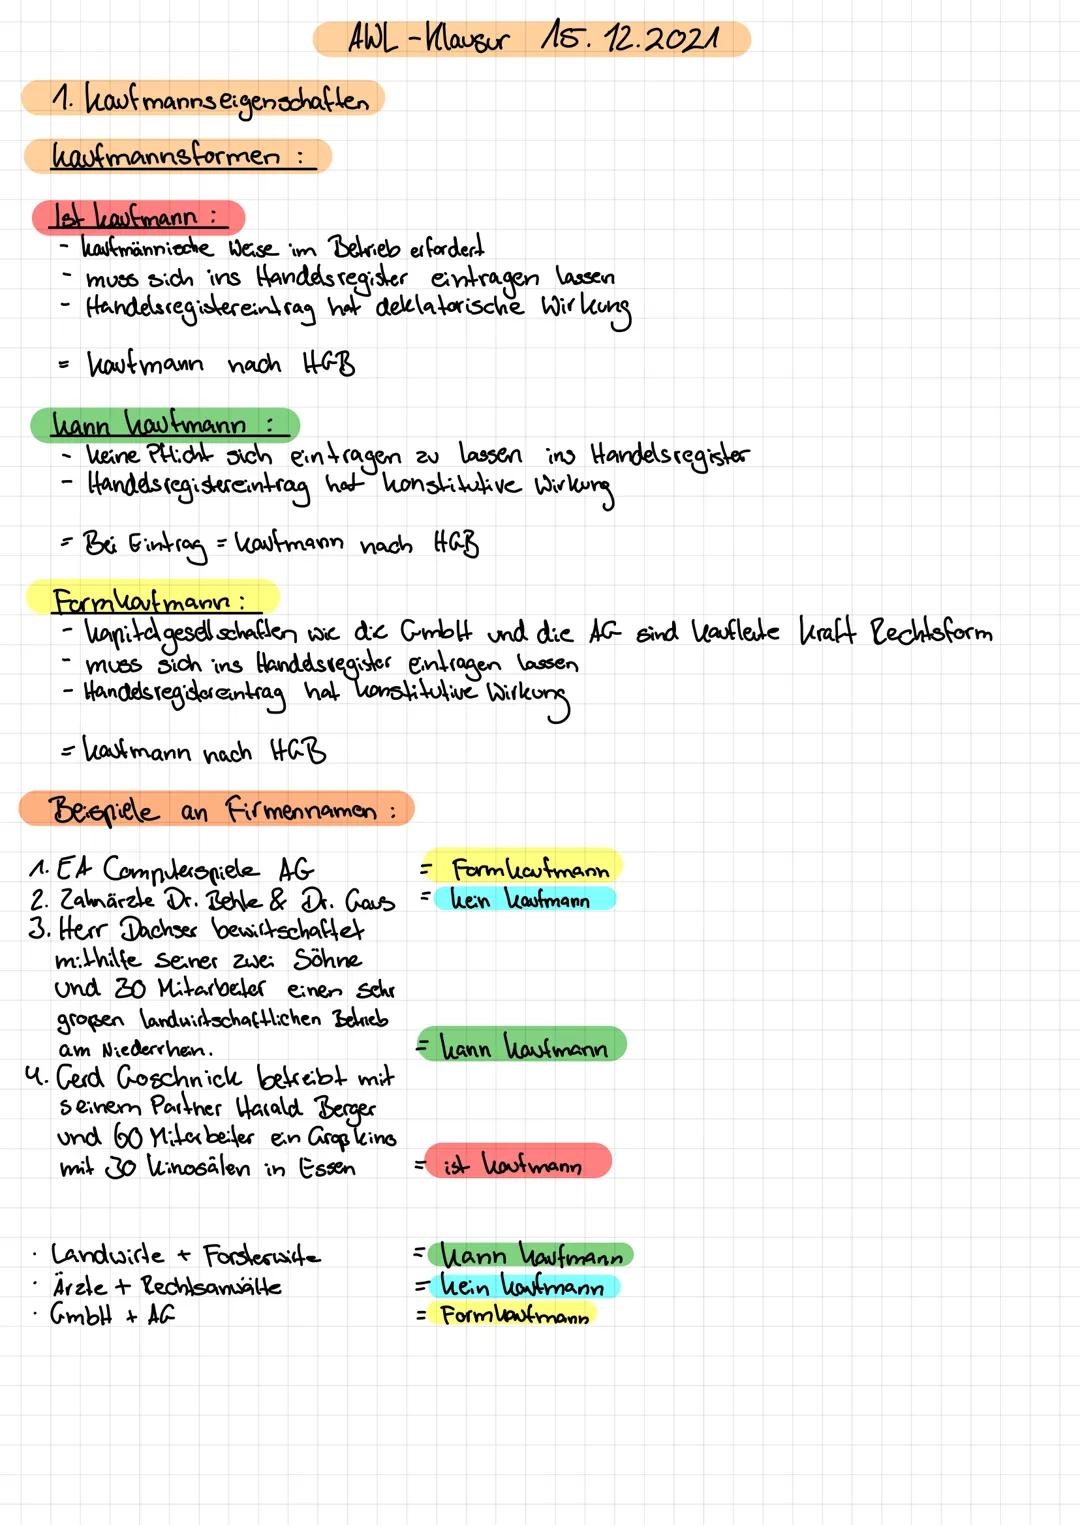 AWL - Klausur 15.12.2021
1. Kaufmannseigenschaften
Kaufmannsformen :
Ist kaufmann :
- kaufmännische Weise im Betrieb erfordert
- muss sich ins Handelsregister eintragen lassen
- Handelsregistereintrag hat deklatorische Wirkung
= Kaufmann nach HGB
Kann Kaufmann :
- keine Pflicht sich eintragen zu lassen ins Handelsregister
- Handelsregistereintrag hat konstitutive Wirkung
= Bei Eintrag = Kaufmann nach HGB
Formkaufmann :
- Kapitalgesellschaften wie die GmbH und die AG sind Kaufleute kraft Rechtsform
- muss sich ins Handelsregister eintragen lassen
- Handelsregistereintrag hat konstitutive Wirkung
= Kaufmann nach HGB
Beispiele an Firmennamen :
1. EA Computerspiele AG = Formkaufmann
2. Zahnärzte Dr. Behle & Dr. Gaus = kein Kaufmann
3. Herr Dachser bewirtschaftet
mithilfe seiner zwei Söhne
und 30 Mitarbeiter einen sehr
großen landwirtschaftlichen Betrieb
am Niederrhein. = kann Kaufmann
4. Gerd Goschnick betreibt mit
seinem Partner Harald Berger
und 60 Mitarbeiter ein Groß kino
mit 30 Kinosälen in Essen = ist kaufmann
· Landwirte + Forsterwirte = Kann Kaufmann
· Ärzte + Rechtsanwälte = kein Kaufmann
· GmbH + AG = Formkaufmann